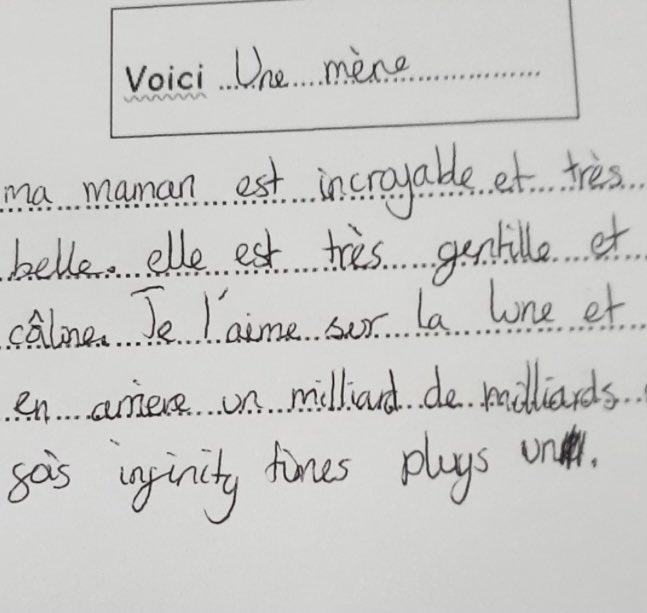 Voici Une mène
ma maman est incroyable et très
belle. elle est très gentille et
câline. Je l'aime sur la lune et
en arriere un milliard de milliards
fois infinity times pluys un.